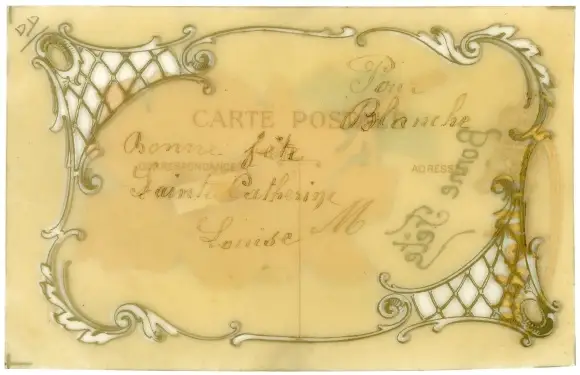 Pour
Blanche
CARTE POSTALE
Bonne fête
CORRESPONDANCE
ADRESSE
Sainte Catherine
Louise M
Bonne Fête